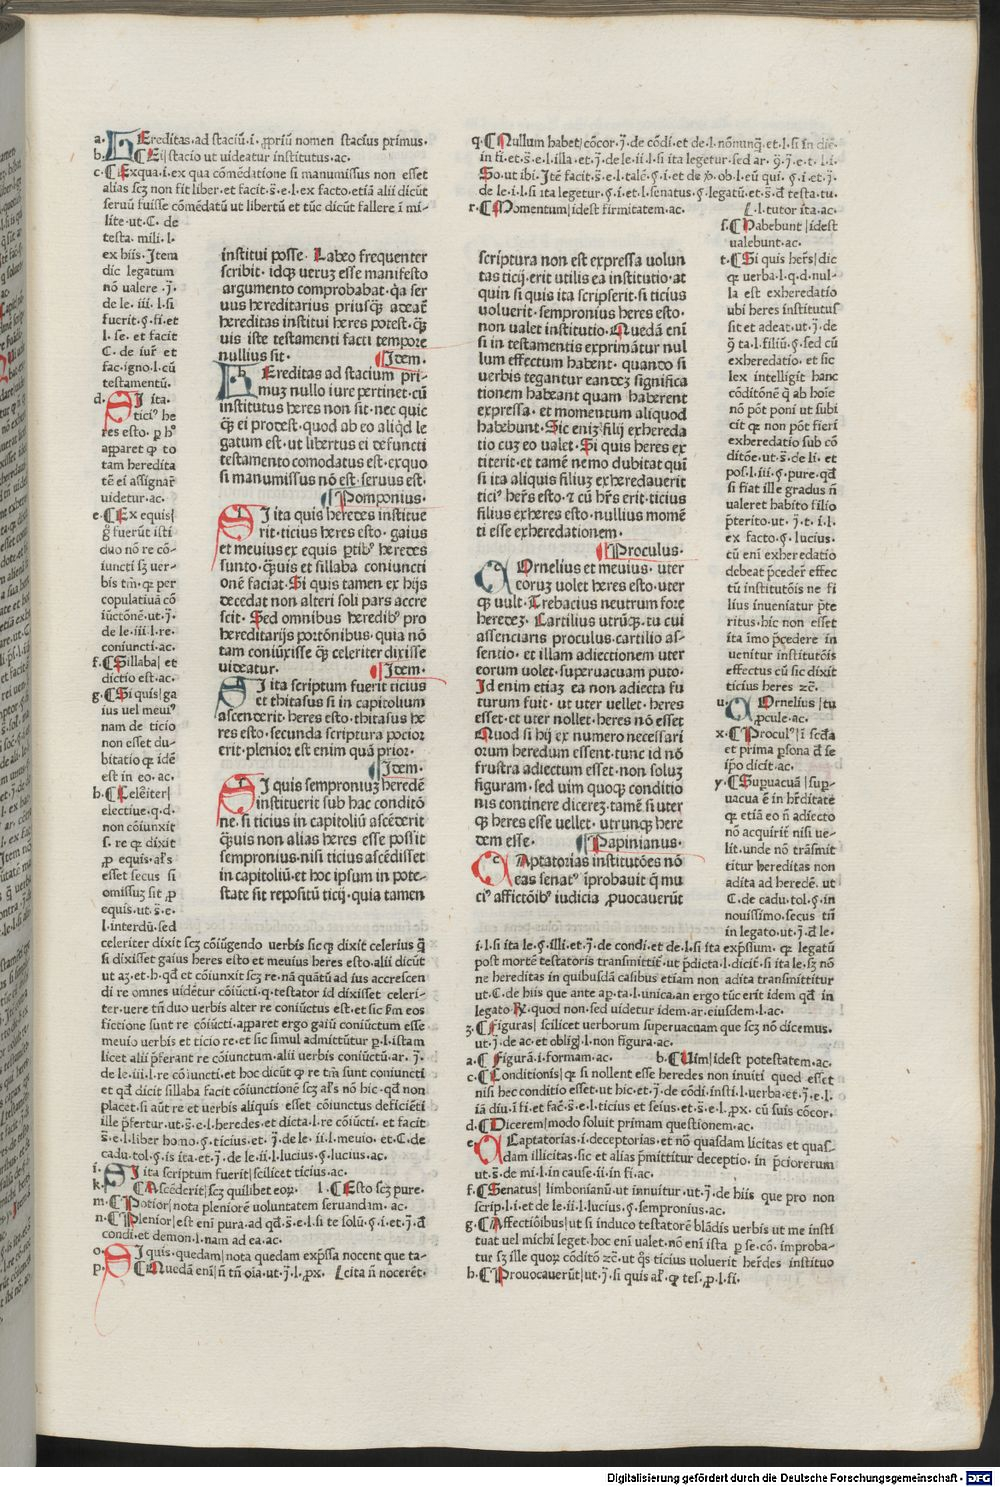 a. HEreditas·ad staciū·i· ꝓpriū nomen stacius primus·
b. Ei| stacio ut uideatur institutus·ac·
c. Exqua·i·ex qua cōmēdatione si manumissus non esset
alias scꝫ non fit liber·et facit·s̄·e·l·ex facto·etiā alii dicūt
seruū fuisse cōmēdatū ut libertū et tūc dicūt fallere ī mi-
lite·ut·C· de
testa· mili· l·
ex hiis· Item
dic legatum
nō ualere ·j̄·
de le· iii· l·si
fuerit·ꝭ·fi·et
l· se· et facit
C· de iur̄ et
fac·igno·l·cū
testamentū·
d. SI ita·
tici⁹ he
res esto· ꝑ h⁰
apparet ꝙ to
tam heredita
tē ei assignar̄
uidetur·ac·
e. Ex equis|
fuerūt isti
duo nō re cō-
iuncti sꝫ uer-
bis tm̄· ꝙ per
copulatiuā cō
iūctōnē·ut·j̄·
de le·iii·l·re·
coniuncti·ac·
f. Sillaba| et
dictio est·ac·
g. Si quis| ga
ius uel meui⁹
nam de ticio
non esset du-
bitatio ꝙ idē
est in eo· ac·
h. Celeriter|
electiue·q·d·
non cōiunxit
s· re ꝙ dixit
ꝓ equis· al's
esset secus si
omissuꝫ sit ꝓ
equis·ut·s̄·e·
l·interdū·sed
celeriter dixit scꝫ cōiūgendo uerbis sicꝙ dixit celerius q̄
si dixisset gaius heres esto et meuius heres esto·alii dicūt
ut aꝫ·et·h·qd̄ et cōiunxit scꝫ re·nā quātū ad ius accrescen
di re omnes uidētur cōiūcti·q·testator id dixisset celeri-
ter·uere tn̄ duo uerbis alter re coniūctus est·et sic ẜm eos
fictione sunt re cōiūcti·apparet ergo gaiū coniūctum esse
meuio uerbis et ticio re·et sic simul admittūtur ꝑ·l·istam
licet alii p̄ferant re cōiunctum·alii uerbis coniūctū·ar· j̄·
de le·iii·l·re cōiuncti·et hoc dicūt ꝙ re tm̄ sunt coniuncti
et qd̄ dicit sillaba facit cōiunctionē scꝫ al's nō hic·qd̄ non
placet·si aūt re et uerbis aliquis esset cōiunctus deficiēti
ille p̄fertur·ut·s̄·e·l·heredes·et dicta·l·re cōiūcti· et facit
s̄·e·l·liber homo·ꝭ·ticius·et· j̄·de le·ii·l·meuio·et·C·de
cadu·tol·ꝭ·is ita·et·j̄·de le·ii·l·lucius·ꝭ·lucius·ac·
i. SI ita scriptum fuerit| scilicet ticius·ac·
k. Ascēderit| scꝫ quilibet eoꝝ· l· Esto scꝫ pure·
m. Potior| nota pleniorē uoluntatem seruandam·ac·
n. Plenior| est eni pura·ad qd̄·s̄·e·l·si te solū·ꝭ·i·et·j̄·d̄
condi·et demon·l·nam ad ea·ac·
o. SI quis·quedam| nota quedam exp̄ssa nocent que ta-
p. Quedā eni| n̄ tn̄ oīa·ut·j̄·l·ꝓx· Lcita n̄ nocerēt·
institui posse· Labeo frequenter
scribit· idqꝫ ueruꝫ esse manifesto
argumento comprobabat·ꝙa ser
uus hereditarius priusꝙ̄ adeat̄
hereditas institui heres potest·ꝙ̄
uis iste testamenti facti tempore
nullius sit· Idem·
HEreditas ad stacium pri-
muꝫ nullo iure pertinet·cū
institutus heres non sit·nec quic
ꝙ̄ ei prodest·quod ab eo aliqd̄ le
gatum est·ut libertus ei defuncti
testamento comodatus est·exquo
si manumissus nō est·seruus est·
Pomponius·
SI ita quis heredes institue
rit·ticius heres esto· gaius
et meuius ex equis ꝑtib⁹ heredes
sunto·ꝙ̄uis et sillaba coniuncti
onē faciat·Si quis tamen ex hijs
decedat non alteri soli pars accre
scit· Sed omnibus heredib⁹ pro
hereditarijs portōnibus·quia nō
tam coniūxisse ꝙ̄ celeriter dixisse
uideatur· Idem·
SI ita scriptum fuerit ticius
et thitasus si in capitolium
ascenderit·heres esto·thitasus he
res esto·secunda scriptura pocior
erit·plenior est enim quā prior·
Idem·
SI quis semproniuꝫ heredē
instituerit sub hac conditō
ne·si ticius in capitoliū ascēderit
ꝙ̄uis non alias heres esse possit
sempronius·nisi ticius ascēdisset
in capitoliū·et hoc ipsum in pote-
state sit repositū ticij·quia tamen
q. Nullum habet| cōcor·j̄·de cōdi·et de·l·nōnunq̄·et·l·si in die·
in fi·et·s̄·e·l·illa·et·j̄·de le·ii·l·si ita legetur·sed ar·
So·ut ibi·Itē facit·s̄·e·l·talē·ꝭ·i·et de ꝟ·ob·l·eū qui·ꝭ·i·et·j̄·
de le·i·l·si ita legetur·ꝭ·i·et·l·senatus·ꝭ·legatū·et·s̄·d̄ testa·tu·
r. Momentum| idest firmitatem·ac· L·l·tutor ita·ac·
s. Habebunt| idest
ualebunt·ac·
t. Si quis her̄s| dic
ꝙ uerba·l·q·d·nul-
la est exheredatio
ubi heres institutus
sit et adeat·ut·j̄·de
ta·l·filiū·ꝭ·sed cū
exheredatio· et sic
lex intelligit hanc
cōditōnē q̄ ab hoīe
nō pōt poni ut subi
cit ꝙ non pōt fieri
exheredatio sub cō
ditōe·ut·s̄·de li· et
pos·l·iii·ꝭ·pure·qd̄
si fiat ille gradus n̄
ualeret habito filio
p̄terito·ut·j̄·t·i·l·
ex facto·ꝭ·lucius·
cū eni exheredatio
debeat p̄ceder̄ effec
tū institutōis ne fi
lius inueniatur p̄te
ritus·hic non esset
ita īmo p̄cedere in
uenitur institutōis
effectus cū sic dixit
ticius heres ꝛc̄·
u. COrnelius| tu
ꝓcule·ac·
x. Procul⁹| ī sc̄da
et prima ꝑsona d̄ se
ip̄o dicit·ac·
y. Suꝑuacuā| suꝑ-
uacua ē in hr̄ditate
ꝙ etiā eo n̄ adiecto
nō acquirit̄ nisi ue-
lit·unde nō trāsmit
titur hereditas non
adita ad heredē· ut
C·de cadu·tol·ꝭ·in
nouissimo·secus tn̄
in legato·ut·j̄·d̄ le·
i·l·si ita le·ꝭ·illi·et·j̄·de condi·et de·l·si ita exp̄ssum· ꝙ legatū
post mortē testatoris transmittit̄·ut p̄dicta·l·dicit̄·si ita le·sꝫ nō
ne hereditas in quibusdā casibus etiam non adita transmittitur
ut·C·de hiis que ante ap·ta·l·unica·an ergo tūc erit idem qd̄ in
legato ꝶ·quod non·sed uidetur idem·ar·eiusdem·l·ac·
z. Figuras| scilicet uerborum superuacuam que scꝫ nō dicemus·
ut·j̄·de ac·et oblig·l·non figura·ac·
a. Figurā·i·formam·ac· b· Uim| idest potestatem·ac·
c. Conditionis| ꝙ si nollent esse heredes non inuiti quod esset
nisi hec conditio esset·ut hic·et·j̄·de cōdi·insti·l·uerba·et·j̄·e·l·
iā diu·i·fi·et fac̄·s̄·e·l·ticius et seius·et·s̄·e·l·ꝓx· cū suis cōcor·
d. Dicerem| modo soluit primam questionem·ac·
e. CAptatorias·i·deceptorias·et nō quasdam licitas et quas-
dam illicitas·sic et alias p̄mittitur deceptio·in p̄ciorerum
ut·s̄·de mi·l·in cause·ii·in fi·ac·
f. Senatus| limbonianū·ut innuitur·ut·j̄·de hiis que pro non
scrip·l·i·et de le·ii·l·lucius·ꝭ·sempronius·ac·
g. Affectiōibus| ut si induco testatorē blādis uerbis ut me insti
tuat uel michi leget·hoc eni ualet·nō eni ista ꝑ se·cō·improba-
tur sꝫ ille quoꝝ cōditō ꝛc̄·ut qꝰs ticius uoluerit her̄des instituo
h. Prouocauerūt| ut·j̄·si quis al'·ꝙ tes·ꝓ·l·fi·
scriptura non est expressa uolun
tas ticij·erit utilis ea institutio·at
quin si quis ita scripserit·si ticius
uoluerit·sempronius heres esto·
non ualet institutio·Quedā eni
si in testamentis exprimātur nul
lum effectum habent· quando si
uerbis tegantur eandeꝫ significa
tionem habeant quam haberent
expressa· et momentum aliquod
habebunt·Sic eniꝫ filij exhereda
tio cuꝫ eo ualet·Si quis heres ex
titerit·et tamē nemo dubitat quī
si ita aliquis filiuꝫ exheredauerit
tici⁹ her̄s esto·⁊ cū hr̄s erit·ticius
filius exheres esto·nullius momē
ti esse exheredationem·
Proculus·
COrnelius et meuius· uter
eoruꝫ uolet heres esto·uter
ꝙ uult·Trebacius neutrum fore
heredeꝫ· Cartilius utrūꝙ·tu cui
assenciaris proculus·cartilio as-
sentio·et illam adiectionem uter
eorum uolet·superuacuam puto·
Id enim etiaꝫ ea non adiecta fu
turum fuit·ut uter uellet·heres
esset·et uter nollet·heres nō esset
Quod si hij ex numero necessari
orum heredum essent·tunc id nō
frustra adiectum esset·non soluꝫ
figuram·sed uim quoꝙ conditio
nis continere dicereꝫ·tamē si uter
ꝙ heres esse uellet·utrunꝙ here
dem esse· Papinianus·
CAptatorias institutōes nō
eas senat⁹ īprobauit q̄ mu
ci⁹ affectōib⁹ iudicia ꝓuocauerūt
Digitalisierung gefördert durch die Deutsche Forschungsgemeinschaft · DFG